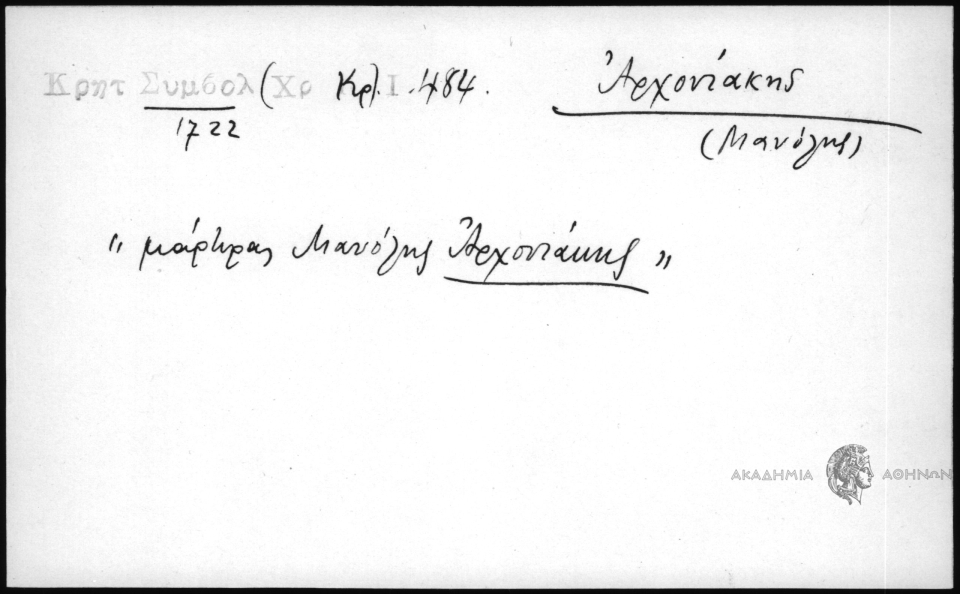 Κρητ Συμβολ (Χρ Κρ). Ι. 484.
Ἀρχοντάκης
1722
(Μανόλης)
" μάρτυρας Μανόλης Ἀρχοντάκης "
ΑΚΑΔΗΜΙΑ ΑΘΗΝΩΝ